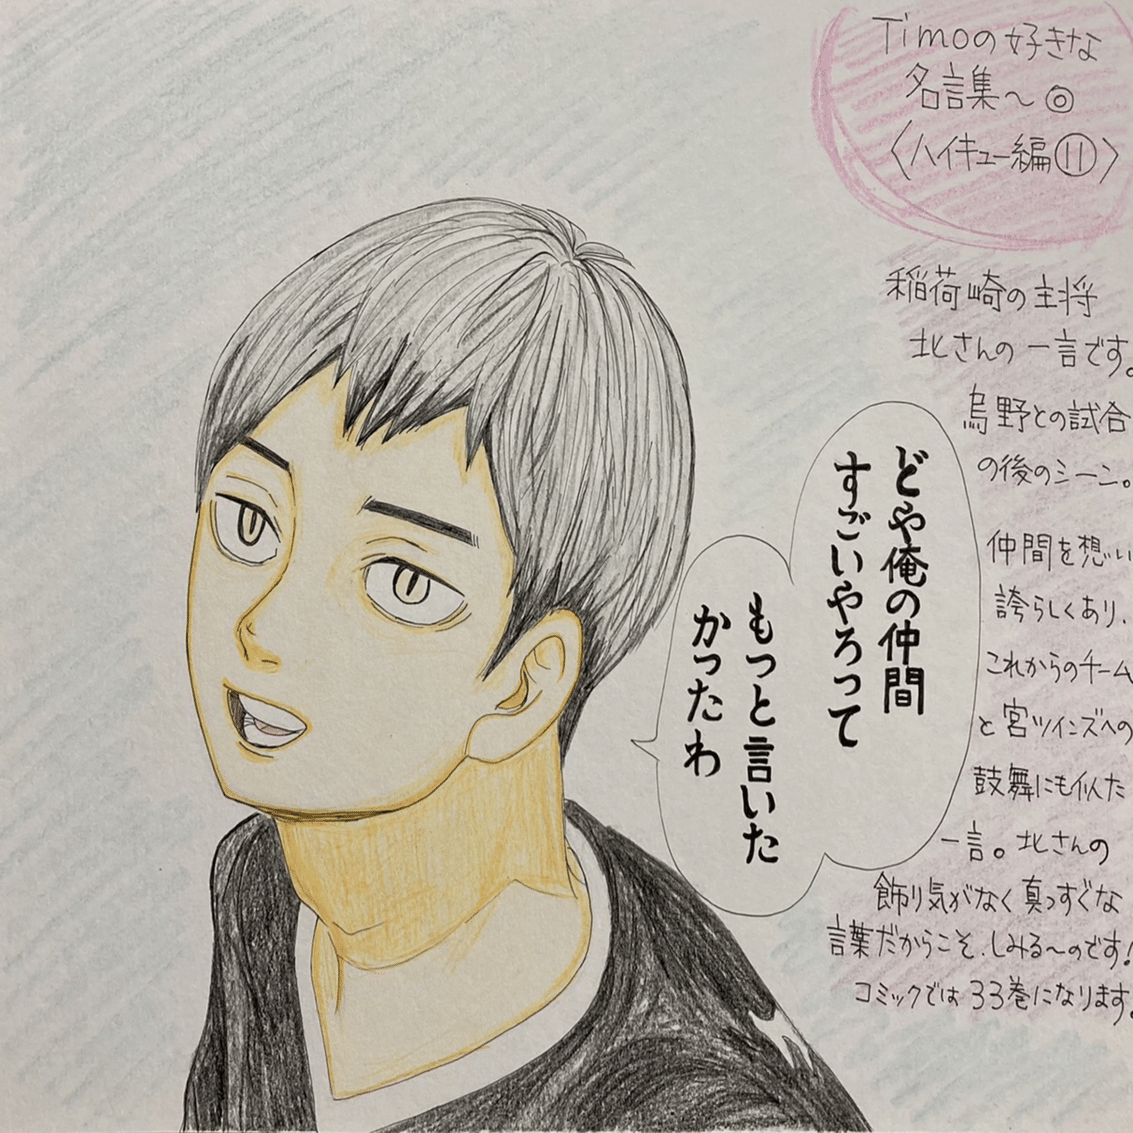 Timoの好きな
名言集〜◎
〈ハイキュー編⑪〉
稲荷崎の主将
北さんの一言です。
烏野との試合
の後のシーン。
仲間を想い
誇らしくあり、
これからのチーム
と宮ツインズへの
鼓舞にも似た
一言。北さんの
飾り気がなく真っすぐな
言葉だからこそ、しみる〜のです!
コミックでは33巻になります。
どや俺の仲間
すごいやろって
もっと言いた
かったわ